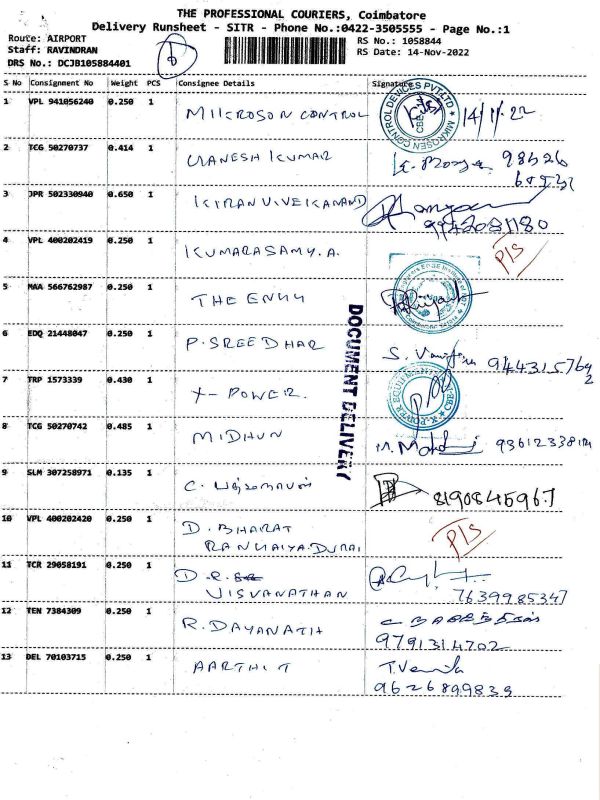 THE PROFESSIONAL COURIERS, Coimbatore
Delivery Runsheet - SITR - Phone No.:0422-3505555 - Page No.:1
Route: AIRPORT
Staff: RAVINDRAN
DRS No.: DCJB105884401
RS No.: 1058844
RS Date: 14-Nov-2022
S No Consignment No Weight PCS Consignee Details Signature
1 VPL 941056240 0.250 1 MIIKROSON CONTROL 14/11/22
2 TCG 50270737 0.414 1 KUMAR 98426
3 JPR 502330940 0.650 1 KIRAN VIVEKANAND
9942081180
4 VPL 400202419 0.250 1 KUMARASAMY.A. P/S
5 MAA 566762987 0.250 1 THE
6 EDQ 21448047 0.250 1 P.SREEDHAR S. 944315769
2
7 TRP 1573339 0.430 1 X-POWER.
8 TCG 50270742 0.485 1 MIDHUN
9 SLM 307258971 0.135 1 C. 8190845967
10 VPL 400202420 0.250 1 D.BHARAT P/S
DURAI
11 TCR 29058191 0.250 1 D.R.
VISVANATHAN 7639985347
12 TEN 7384309 0.250 1 R.DAYANATH
9791314702
13 DEL 70103715 0.250 1 AARTHI T
9626899839
DOCUMENT DELIVERY